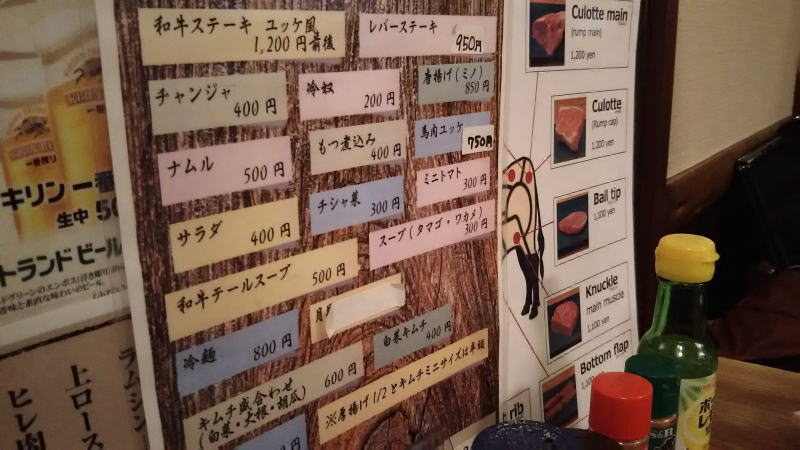 和牛ステーキ ユッケ風
1,200円前後
レバーステーキ
950円
チャンジャ
400円
冷奴
200円
唐揚げ(ミノ)
850円
ナムル
500円
もつ煮込み
400円
馬肉ユッケ
750円
サラダ
400円
チシャ菜
300円
ミニトマト
300円
スープ(タマゴ・ワカメ)
300円
和牛テールスープ
500円
冷麺
800円
白菜キムチ
400円
キムチ盛合わせ
(白菜・大根・胡瓜)
600円
※唐揚げ1/2とキムチミニサイズは半額
円
Culotte main
(rump main)
1,200 yen
Culotte
(Rump cap)
1,200 yen
Ball tip
1,100 yen
Knuckle
main muscle
1,100 yen
Bottom flap
rib
キリン一番
生中
トランドビール
上ロース
ヒレ肉